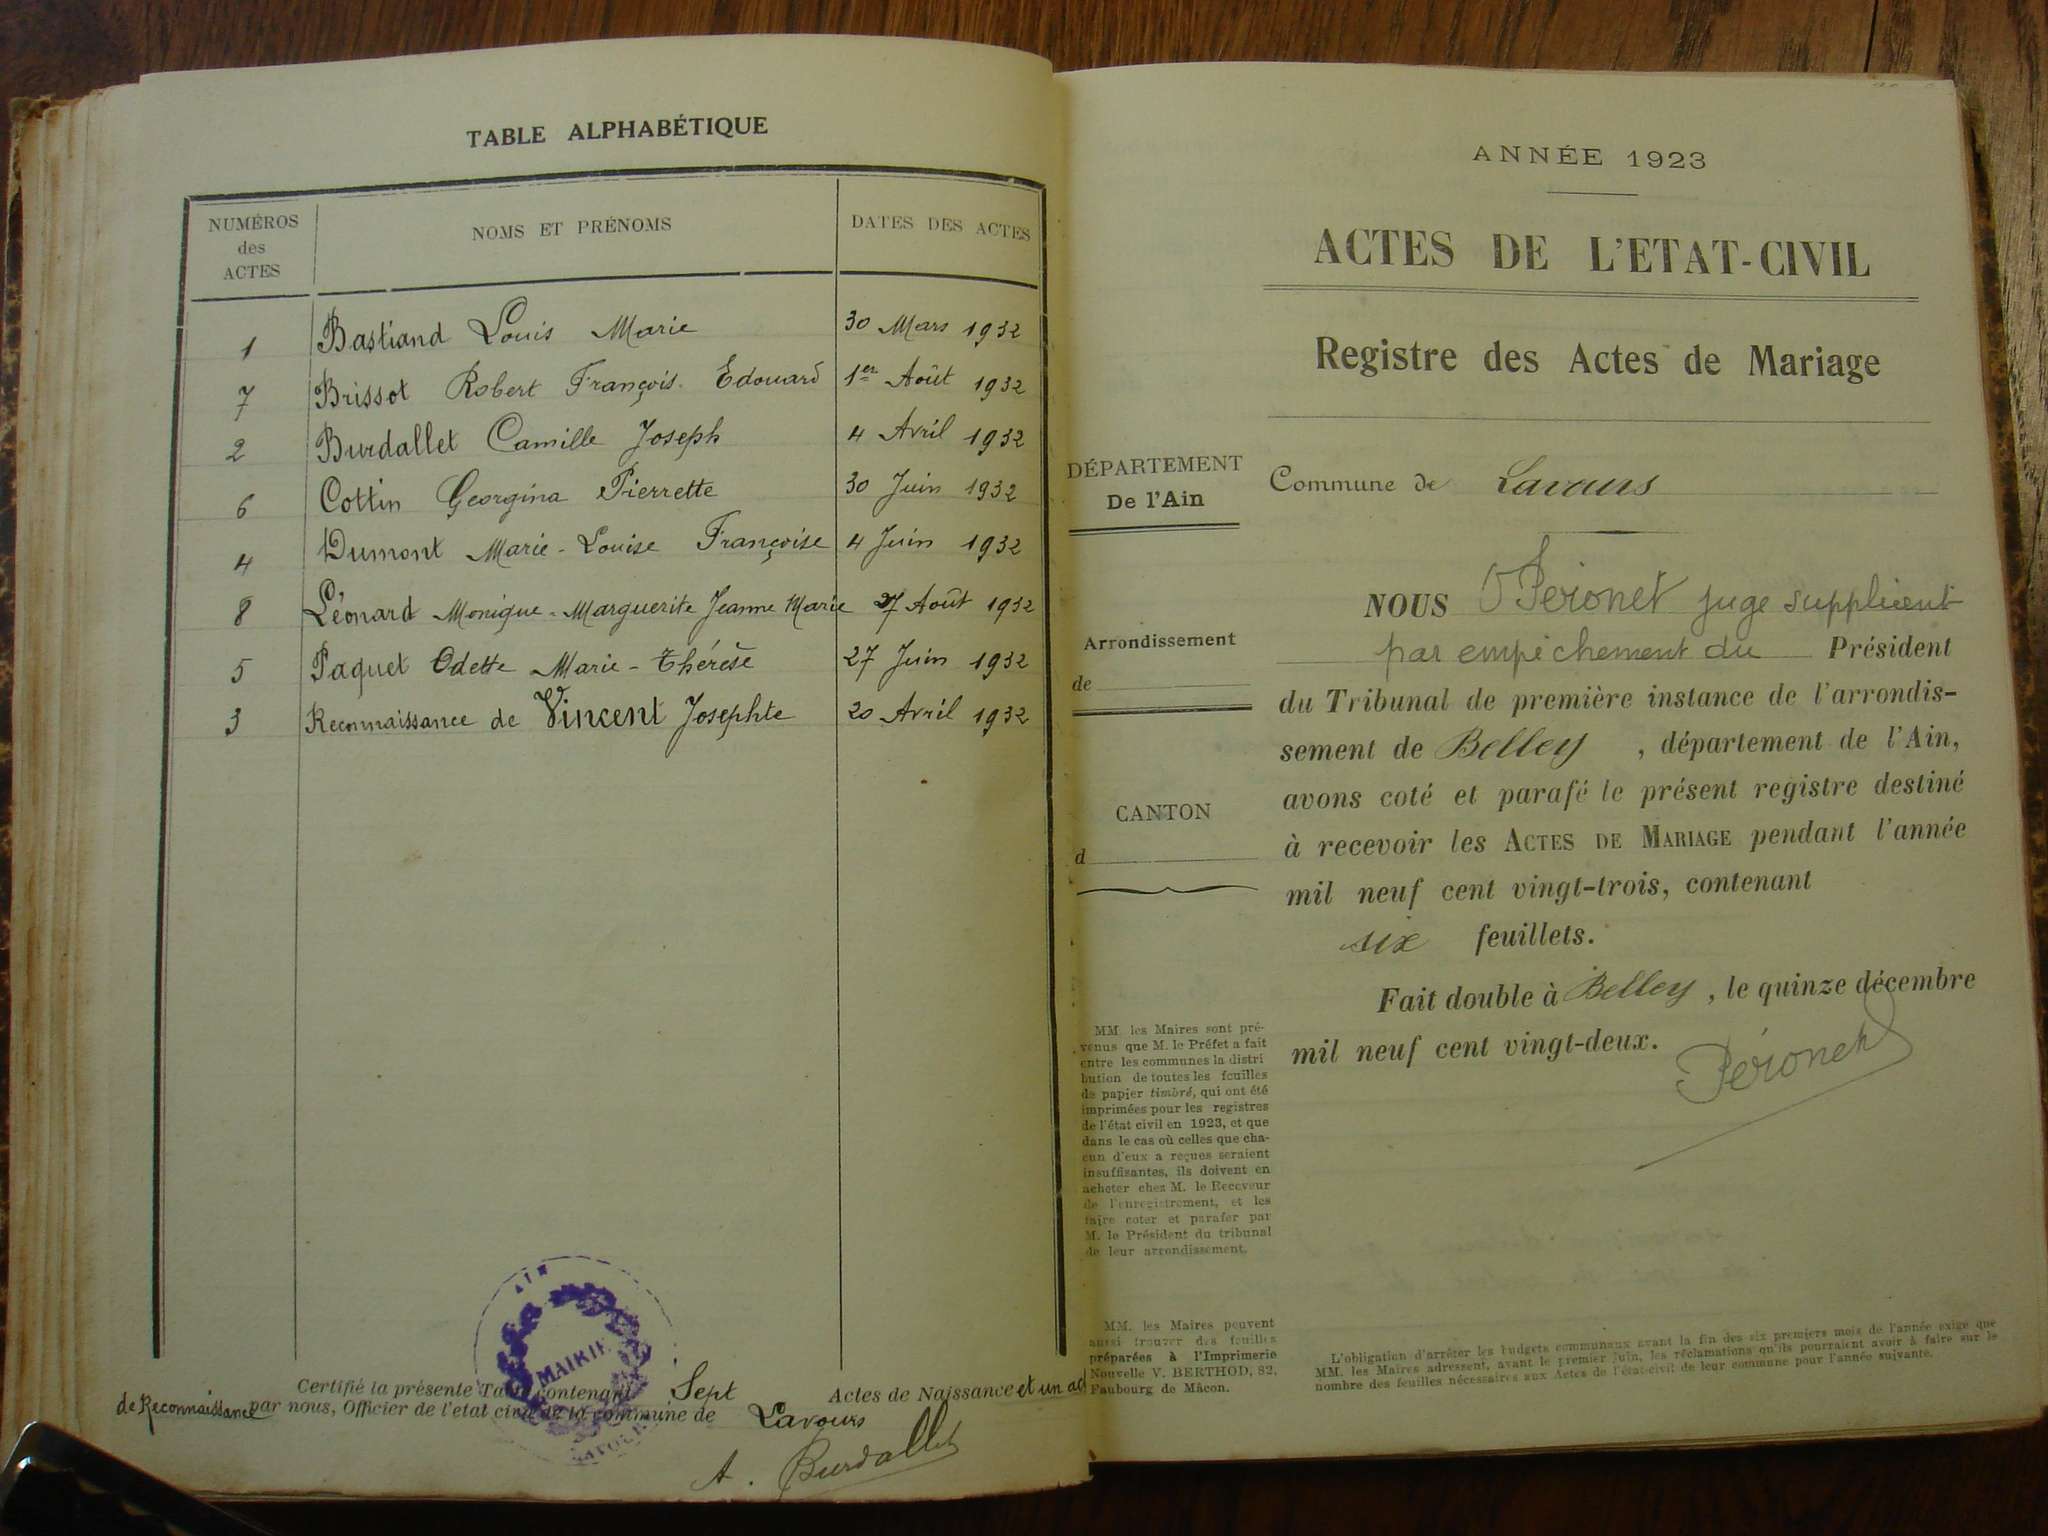 TABLE ALPHABÉTIQUE
NUMÉROS des ACTES
NOMS ET PRÉNOMS
DATES DES ACTES
1 Bastiand Louis Marie 30 Mars 1932
7 Brissot Robert François Edouard 1er Août 1932
2 Burdallet Camille Joseph 4 Avril 1932
6 Cottin Georgina Pierrette 30 Juin 1932
4 Dumont Marie-Louise Françoise 4 Juin 1932
8 Léonard Monique-Marguerite Jeanne Marie 27 Août 1932
5 Paquet Odette Marie-Thérèse 27 Juin 1932
3 Reconnaissance de Vincent Josephte 20 Avril 1932
AIN
MAIRIE
LAVOURS
Certifié la présente Table contenant Sept Actes de Naissance et un act
de Reconnaissance par nous, Officier de l'etat civil de la commune de Lavours
A. Burdallet
ANNÉE 1923
ACTES DE L'ETAT-CIVIL
Registre des Actes de Mariage
DÉPARTEMENT
De l'Ain
Commune de Lavours
Arrondissement
de
CANTON
d
NOUS Péronet juge suppléant
par empêchement du Président
du Tribunal de première instance de l'arrondis-
sement de Belley, département de l'Ain,
avons coté et parafé le présent registre destiné
à recevoir les ACTES DE MARIAGE pendant l'année
mil neuf cent vingt-trois, contenant
six feuillets.
Fait double à Belley, le quinze décembre
mil neuf cent vingt-deux.
Péronet
MM. les Maires sont pré-
venus que M. le Préfet a fait
entre les communes la distri
bution de toutes les feuilles
de papier timbré, qui ont été
imprimées pour les registres
de l'état civil en 1923, et que
dans le cas où celles que cha-
cun d'eux a reçues seraient
insuffisantes, ils doivent en
acheter chez M. le Receveur
de l'enregistrement, et les
faire coter et parafer par
M. le Président du tribunal
de leur arrondissement.
MM. les Maires peuvent
aussi trouver des feuilles
préparées à l'Imprimerie
Nouvelle V. BERTHOD, 82,
Faubourg de Mâcon.
L'obligation d'arrêter les budgets communaux avant la fin des six premiers mois de l'année exige que
MM. les Maires adressent, avant le premier juin, les réclamations qu'ils pourraient avoir à faire sur le
nombre des feuilles nécessaires aux Actes de l'état-civil de leur commune pour l'année suivante.